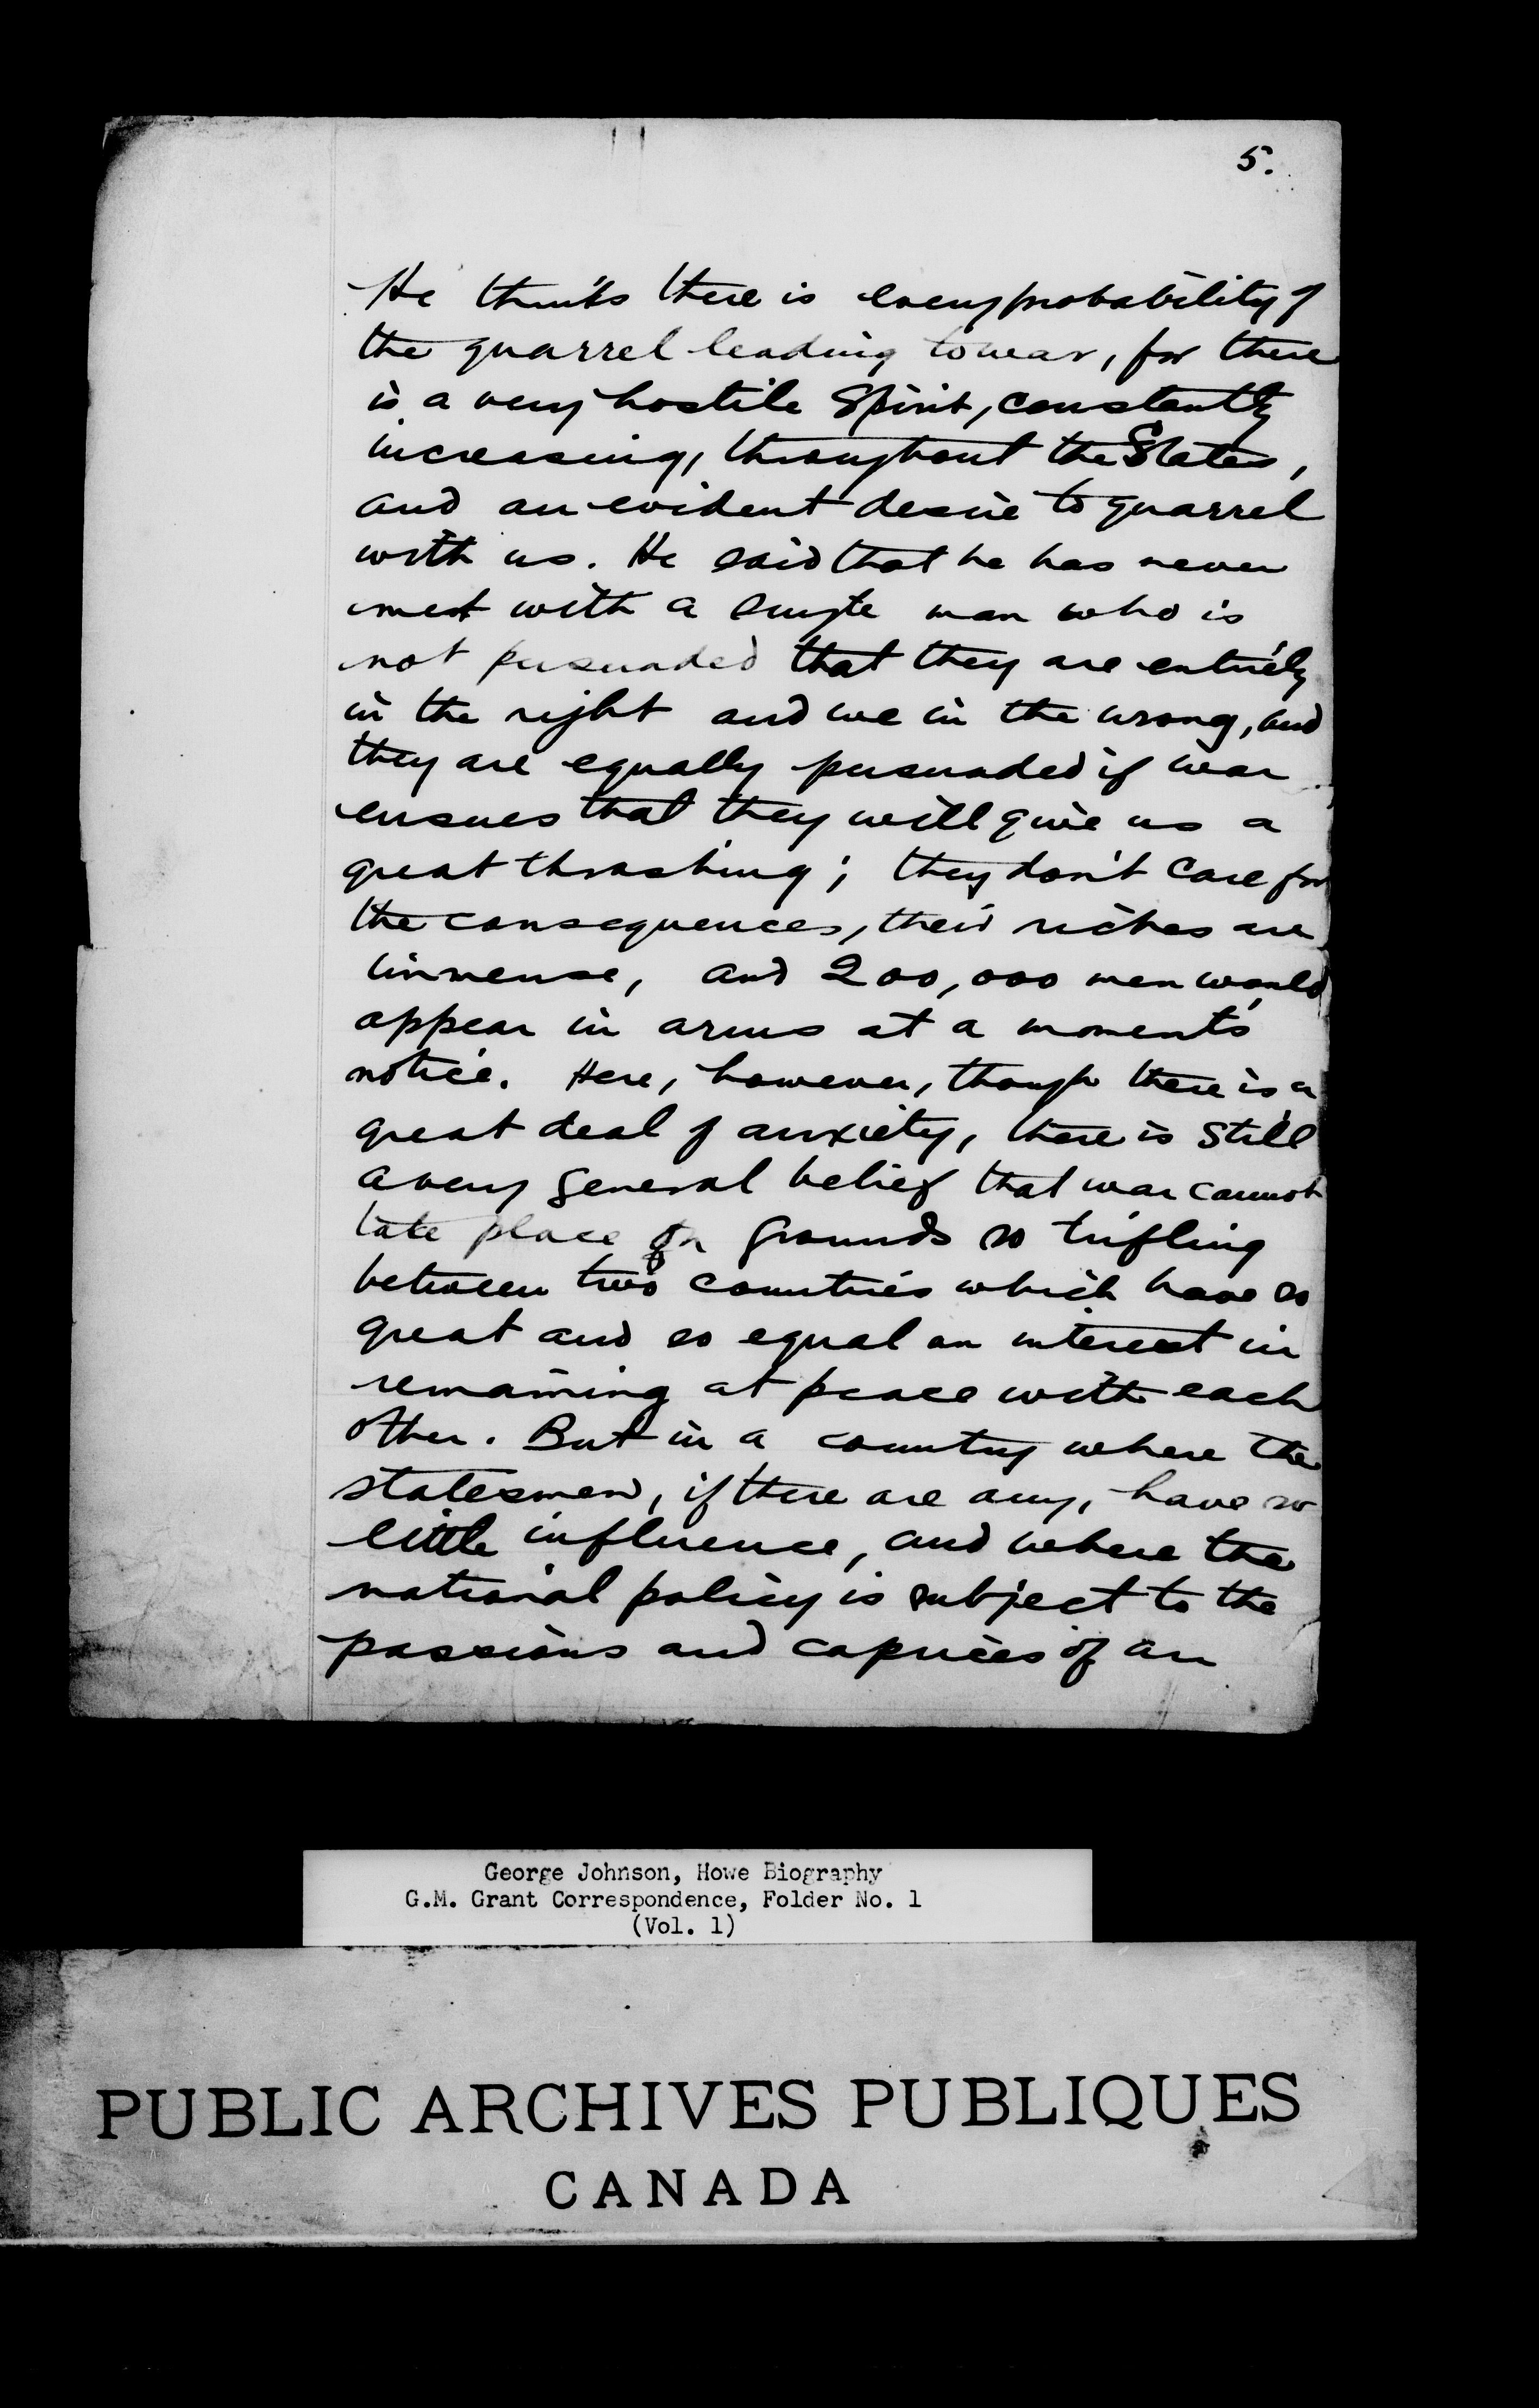 5.
He thinks there is every probability of
the quarrel leading to war, for there
is a very hostile Spirit, constantly
increasing, throughout the States,
and an evident desire to quarrel
with us. He said that he has never
met with a single man who is
not persuaded that they are entirely
in the right and we in the wrong, and
they are equally persuaded if war
ensues that they will give us a
great thrashing; they don't care for
the consequences, their riches are
immense, and 200,000 men would
appear in arms at a moment's
notice. Here, however, though there is a
great deal of anxiety, there is still
a very general belief that war cannot
take place on grounds so trifling
between two countries which have so
great and so equal an interest in
remaining at peace with each
other. But in a country where the
statesmen, if there are any, have so
little influence, and where the
national policy is subject to the
passions and caprices of an
George Johnson, Howe Biography
G.M. Grant Correspondence, Folder No. 1
(Vol. 1)
PUBLIC ARCHIVES PUBLIQUES
CANADA